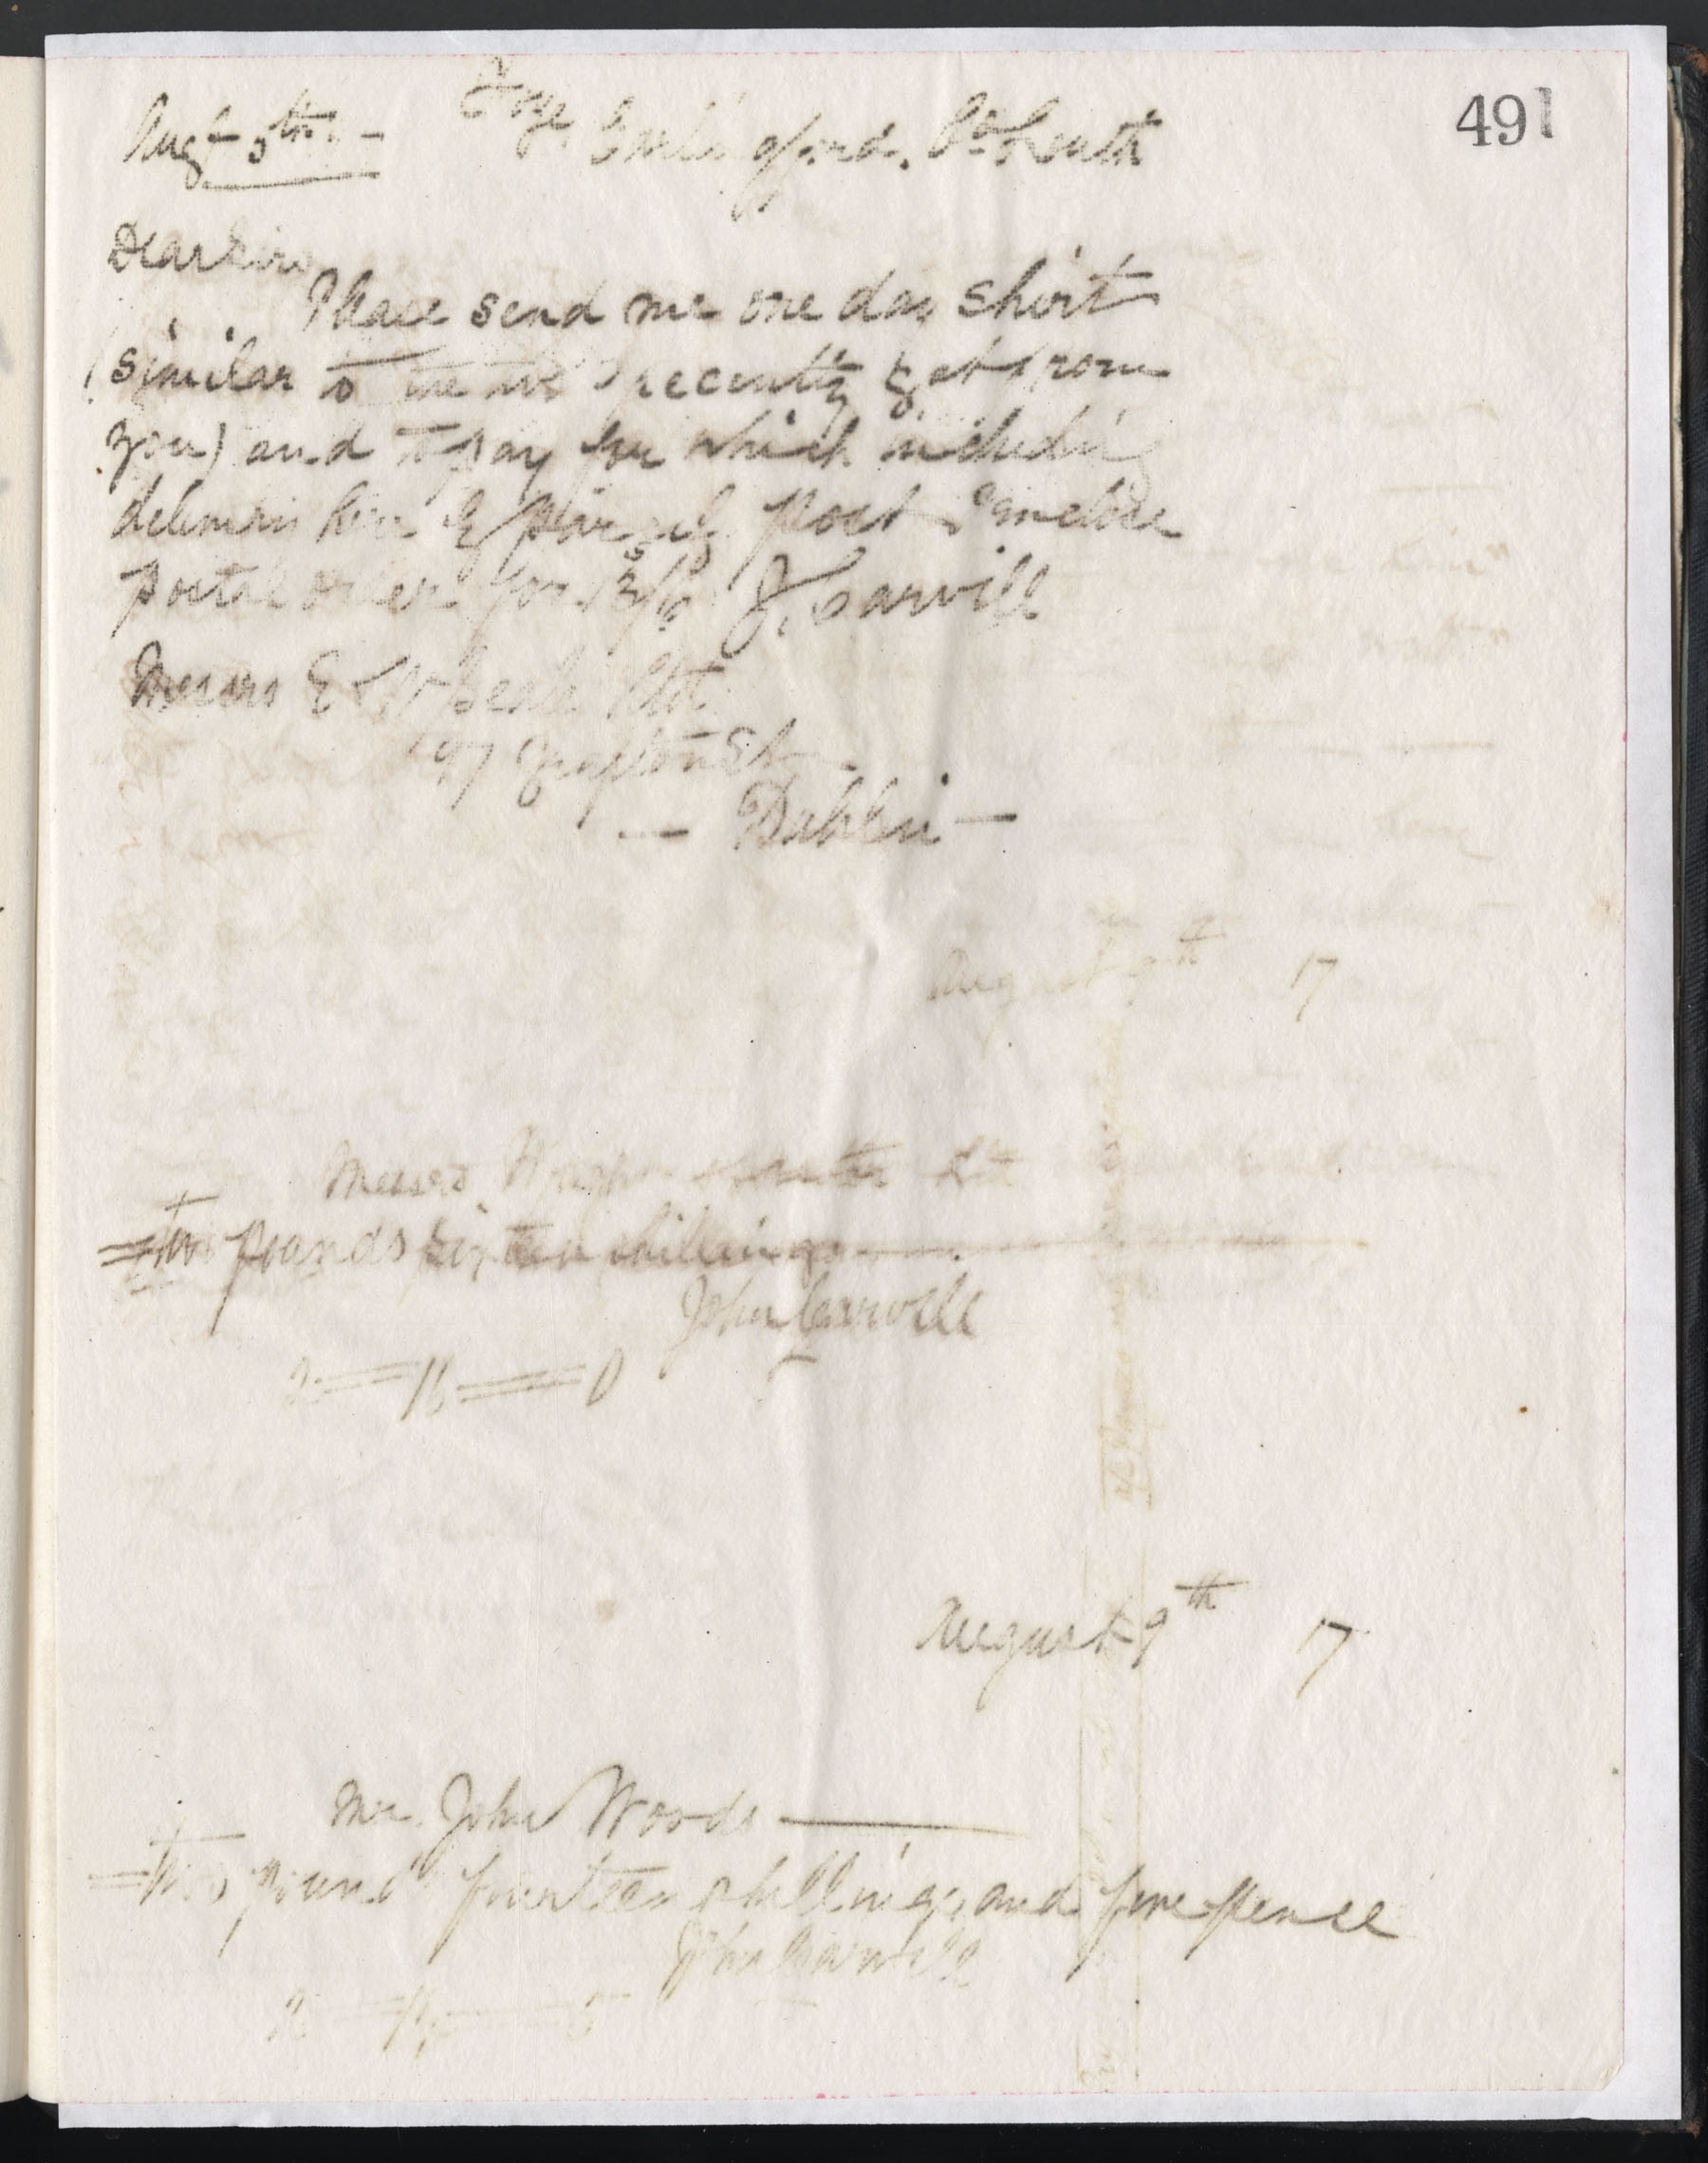 491
Augt 5th - Carlingford. Co Louth
Dear Sirs
Please send me one day shirt
(similar to the two I recently got from
you) and to pay for which including
delivery here by parcels post I enclose
postal order for J. Carvill
Messrs E & W Seale Ltd
97 Grafton St
— Dublin —
August 9th 17
Messrs Ltd
=two pounds sixteen shillings
John Carvill
2=16=0
August 9th 17
Mr. John Woods
=two pounds fourteen shillings and five pence
John Carvill
2=14=5